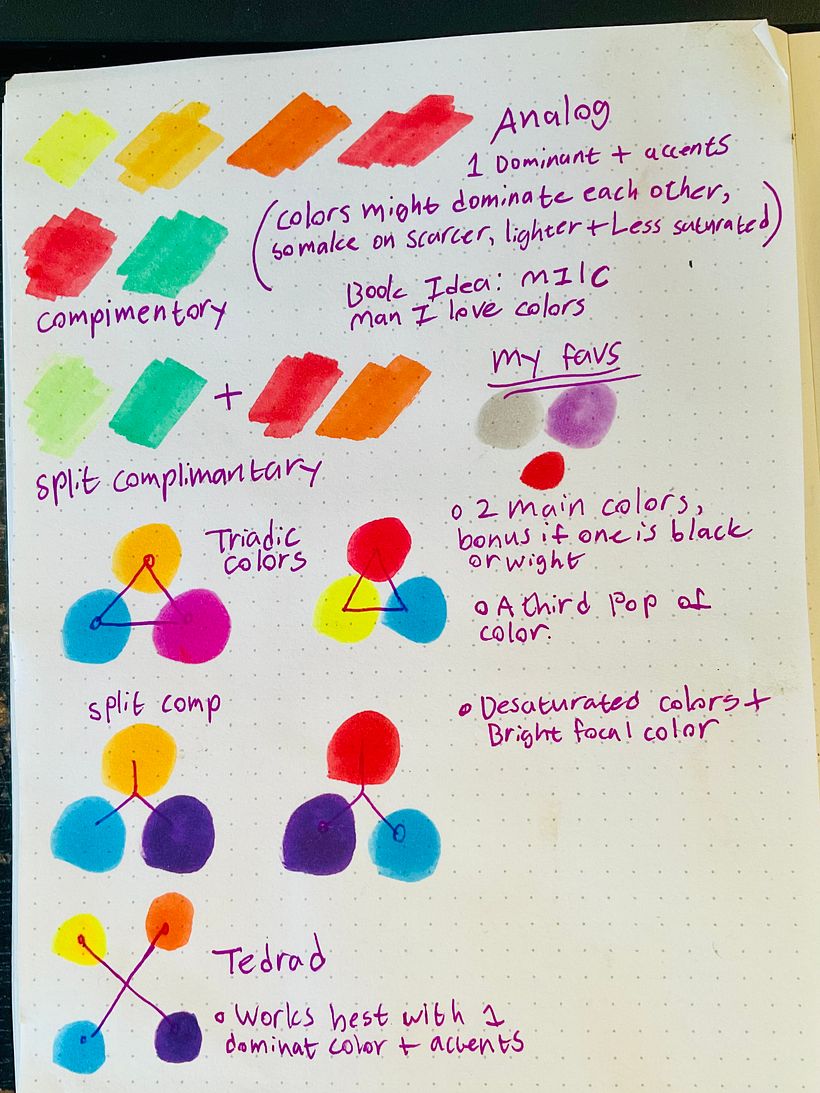 Analog
1 Dominant + accents
(colors might dominate each other,
so make on scarcer, lighter + Less saturated)
compimentory
Book Idea: MIlC
Man I love colors
my favs
split complimantary
Triadic
colors
o 2 main colors,
bonus if one is black
or wight
o A third Pop of
color.
split comp
o Desaturated colors +
Bright focal color
Tedrad
o Works best with 1
dominat color + accents